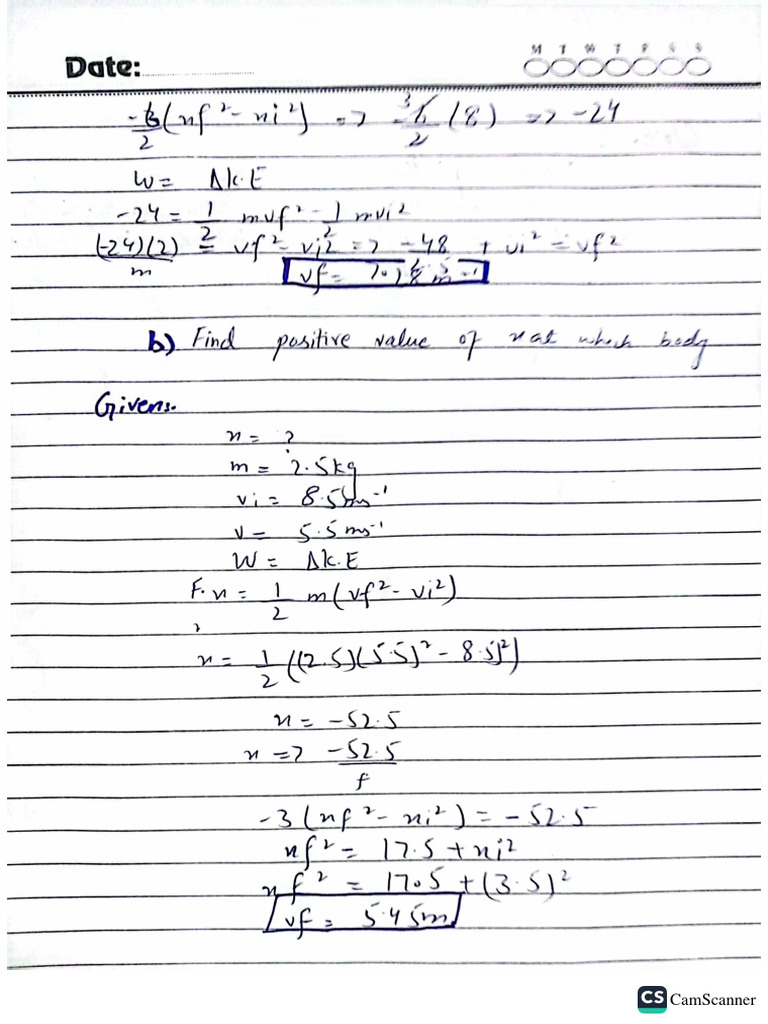 Date:
M T W T F S S
-6/2 (xf² - xi²) => -6/2 (8) => -24
W = ΔK.E
-24 = 1/2 mvf² - 1/2 mvi²
(-24)(2)/m = vf² - vi² => -48 + vi² = vf²
vf =
b) Find positive value of x at which body
Given:
x = ?
m = 2.5kg
vi = 8.5ms⁻¹
v = 5.5 ms⁻¹
W = ΔK.E
F.x = 1/2 m(vf² - vi²)
x = 1/2 ((2.5)(5.5)² - 8.5)²)
x = -52.5
x => -52.5/f
-3(xf² - xi²) = -52.5
xf² = 17.5 + xi²
xf² = 17.5 + (3.5)²
vf = 5.45m
CS CamScanner